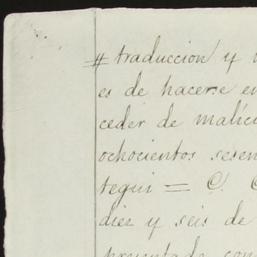 # traduccion y
es de hacerse en
ceder de malici
ochocientos sesen
tegui = C.
diez y seis de
presentado con